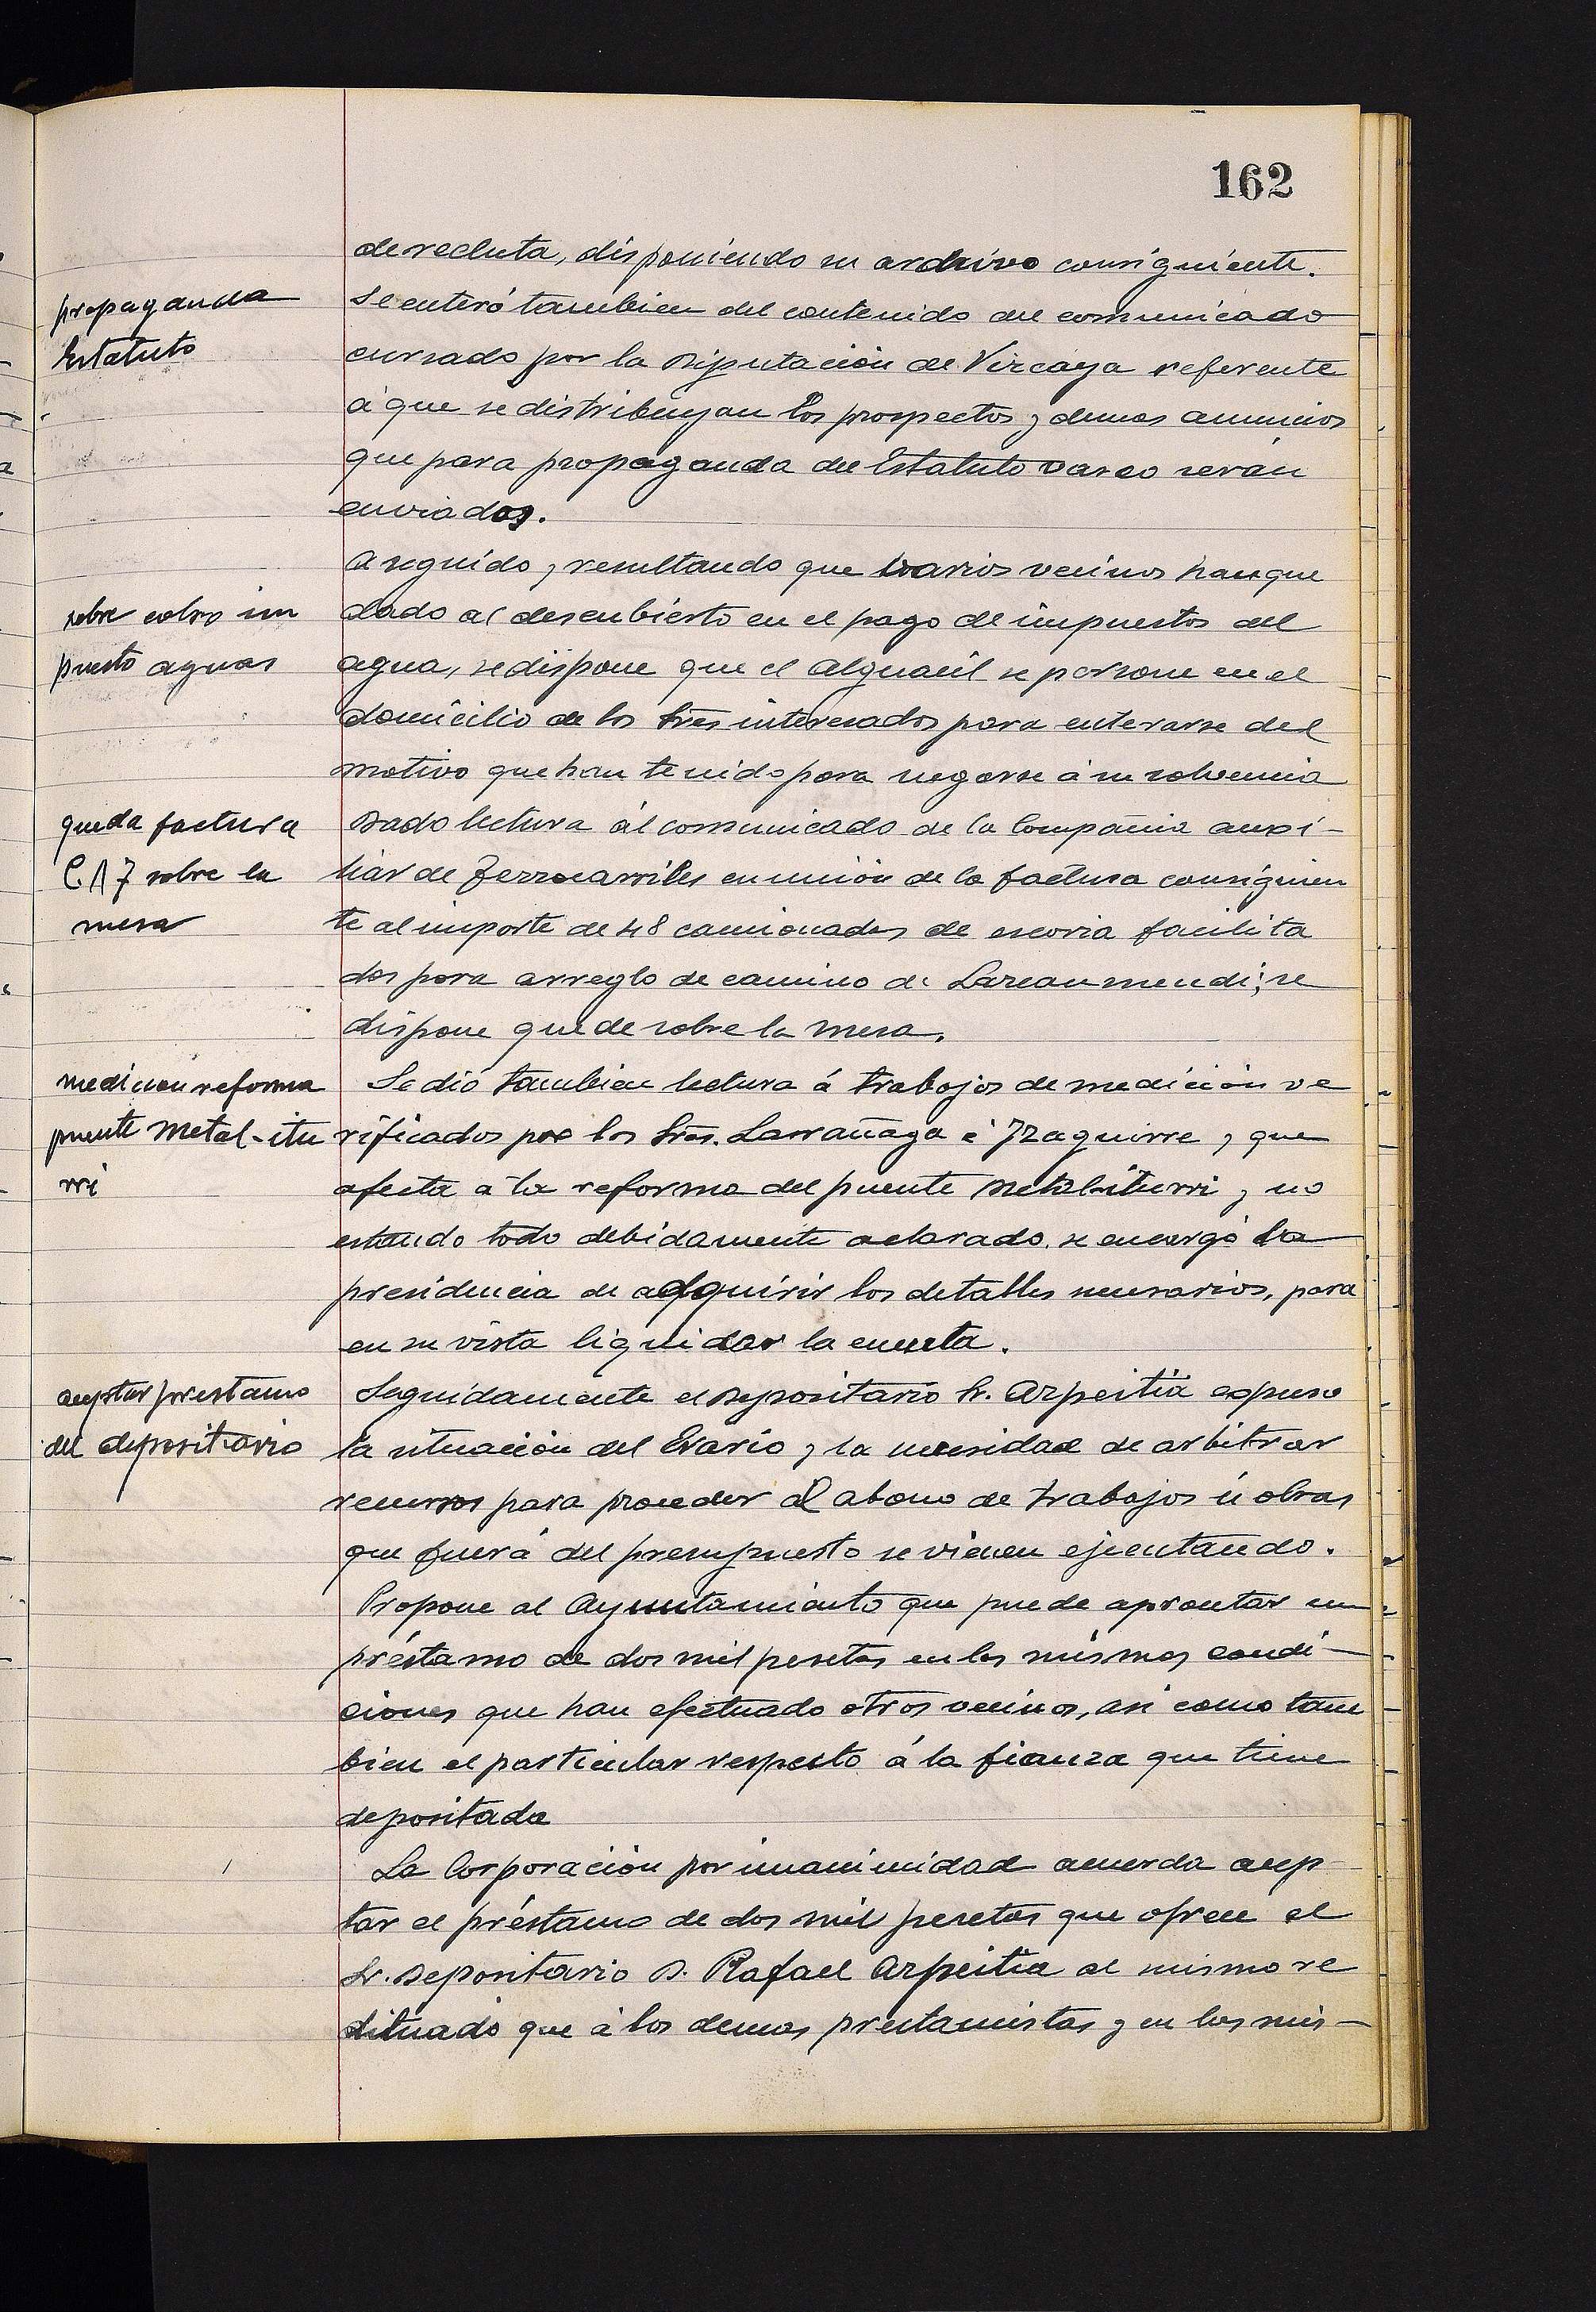 162
de recluta, disponiendo su archivo consiguiente.
propaganda
Estatuto
Se enteró tambien del contenido del comunicado
cursado por la Diputación de Vizcaya referente
á que se distribuyan los prospectos y demas anuncios
que para propaganda del Estatuto vasco serán
enviados.
A seguido, resultando que varios vecinos han que
sobre cobro im
puesto aguas
dado al descubierto en el pago de impuestos del
agua, se dispone que el alguacil se persone en el
domicilio de los tres interesados para enterarse del
motivo que han tenido para negarse á su solvencia
queda factura
C A F sobre la
mesa
Dado lectura ál comunicado de la Compañia auxi-
liar de Ferrocarriles en unión de la factura consiguien
te al importe de 48 camionadas de escoria facilita
das para arreglo de camino de Larzaumendi; se
dispone quede sobre la mesa.
medicion reforma
puente Metal-itu
rri
Se dió tambien lectura á trabajos de medición ve
rificados por los Sres. Larrañaga é Izaguirre, y que
afecta a la reforma del puente Metalíturri y no
estando todo debidamente aclarado, se encargó la
presidencia de adquirir los detalles necesarios, para
en su vista liquidar la cuenta.
aceptar prestamo
del depositario
Seguidamente el Depositario Sr. Azpeitia expuso
la situación del Erario y la necesidad de arbitrar
recursos para proceder al abono de trabajos ú obras
que fuera del presupuesto se vienen ejecutando.
Propone al Ayuntamiento que puede aprontar un
préstamo de dos mil pesetas en las mismas condi-
ciones que han efectuado otros vecinos, asi como tam
bien el particular respecto á la fianza que tiene
depositada
La Corporación por unanimidad acuerda acep
tar el préstamo de dos mil pesetas que ofrece el
Sr. Depositario D. Rafael Azpeitia al mismo re
dituado que á los demas prestamistas y en las mis-